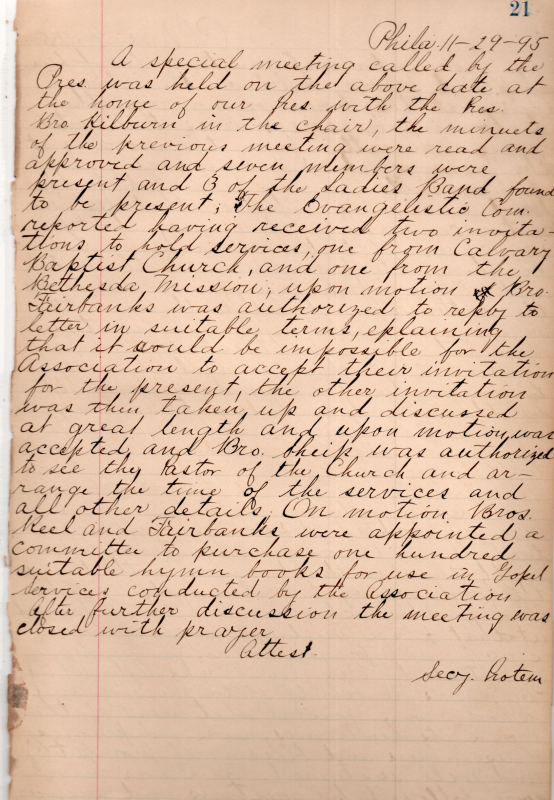 21
Phila. 11-29-95
A special meeting called by the
Pres. was held on the above date at
the home of our Pres. with the Pres.
Bro. Kilburn in the chair, the minuets
of the previous meeting were read and
approved and seven members were
present, and 3 of the Ladies Band found
to be present, The Evangelistic Com.
reported having received two invita-
tions to hold services, one from Calvary
Baptist Church, and one from the
Bethesda Mission, upon motion Bro.
Fairbanks was authorized to reply to
letter in suitable terms, eplaining
that it would be impossible for the
Association to accept their invitation
for the present, the other invitation
was then taken up and discussed
at great length and upon motion, was
accepted and Bro. was authorized
to see the Pastor of the Church and ar-
range the time of the services and
all other details. On motion Bros.
Keel and Fairbanks were appointed a
committee to purchase one hundred
suitable hymn books for use in Gopel
services conducted by the Association
after further discussion the meeting was
closed with prayer
Attest.
Secy. Protem